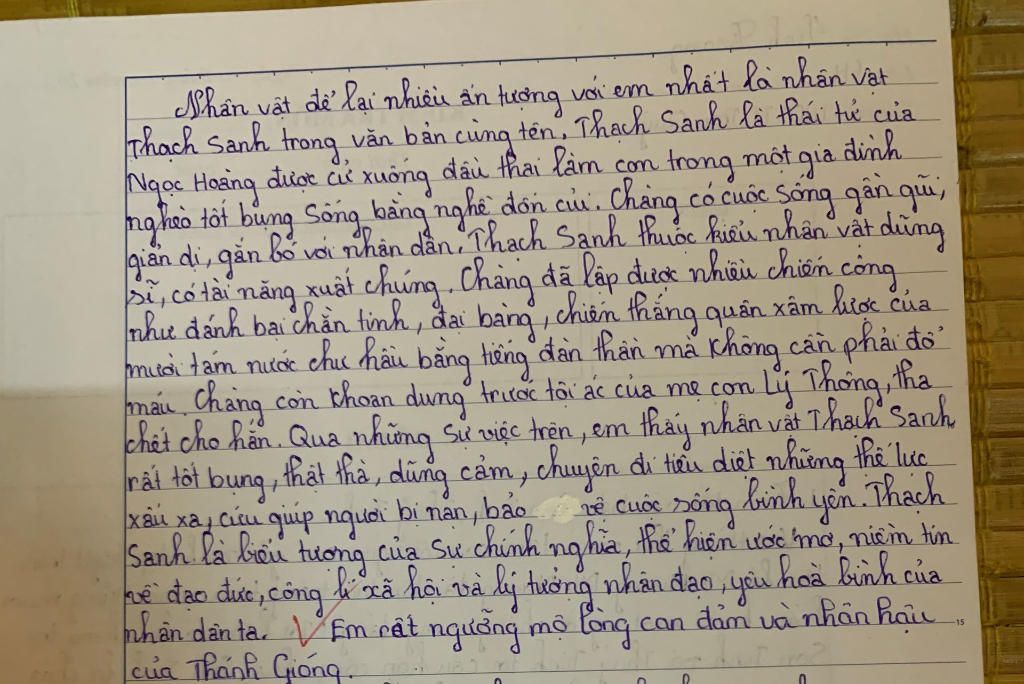 Nhân vật để lại nhiều ấn tượng với em nhất là nhân vật
Thạch Sanh trong văn bản cùng tên. Thạch Sanh là thái tử của
Ngọc Hoàng được cử xuống đầu thai làm con trong một gia đình
nghèo tốt bụng sống bằng nghề đốn củi. Chàng có cuộc sống gần gũi,
giản dị, gắn bó với nhân dân. Thạch Sanh thuộc kiểu nhân vật dũng
sĩ, có tài năng xuất chúng. Chàng đã lập được nhiều chiến công
như đánh bại chằn tinh, đại bàng, chiến thắng quân xâm lược của
mười tám nước chư hầu bằng tiếng đàn thần mà không cần phải đổ
máu. Chàng còn khoan dung trước tội ác của mẹ con Lý Thông, tha
chết cho hắn. Qua những sự việc trên, em thấy nhân vật Thạch Sanh
rất tốt bụng, thật thà, dũng cảm, chuyên đi tiêu diệt những thế lực
xấu xa, cứu giúp người bị nạn, bảo vệ cuộc sống bình yên. Thạch
Sanh là biểu tượng của sự chính nghĩa, thể hiện ước mơ, niềm tin
về đạo đức, công lí xã hội và lý tưởng nhân đạo, yêu hoà bình của
nhân dân ta. Em rất ngưỡng mộ lòng can đảm và nhân hậu
của Thánh Gióng.